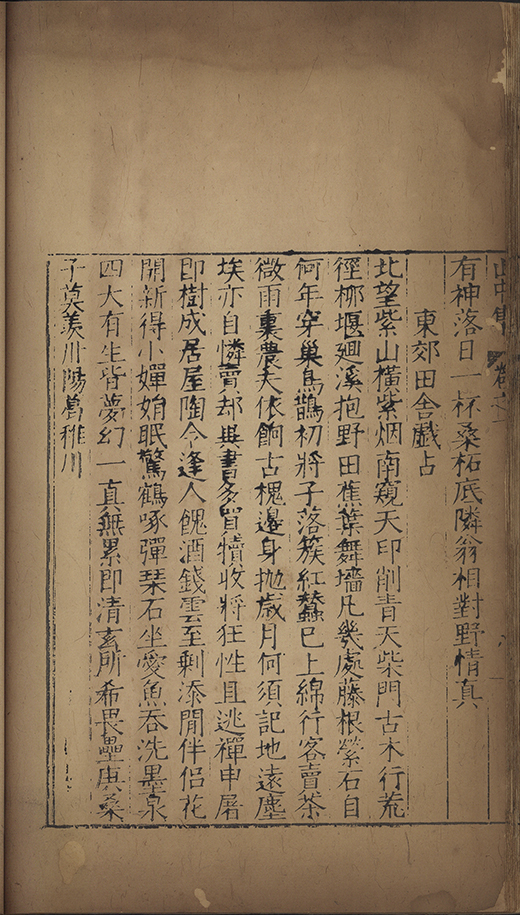 山中集 卷之一
有神落日一杯桑柘底隣翁相對野情真
東郊田舍戲占
北望紫山橫紫烟南窺天印削青天柴門古木行荒
徑柳堰廻溪抱野田蕉葉舞墻凡幾處藤根縈石自
何年穿巢烏鵲初將子落簇紅蠶已上綿行客賣茶
微雨裏農夫依餉古槐邊身拋歲月何須記地遠塵
埃亦自憐賣却異書多買犢收將狂性且逃禪申屠
即樹成居屋陶令逢人餽酒錢雲至剩添閒伴侶花
開新得小嬋娟眠驚鶴啄彈琹石坐愛魚吞洗墨泉
四大有生皆夢幻一真無累即清玄所希畏壘庚桑
子莫羨丹陽葛稚川